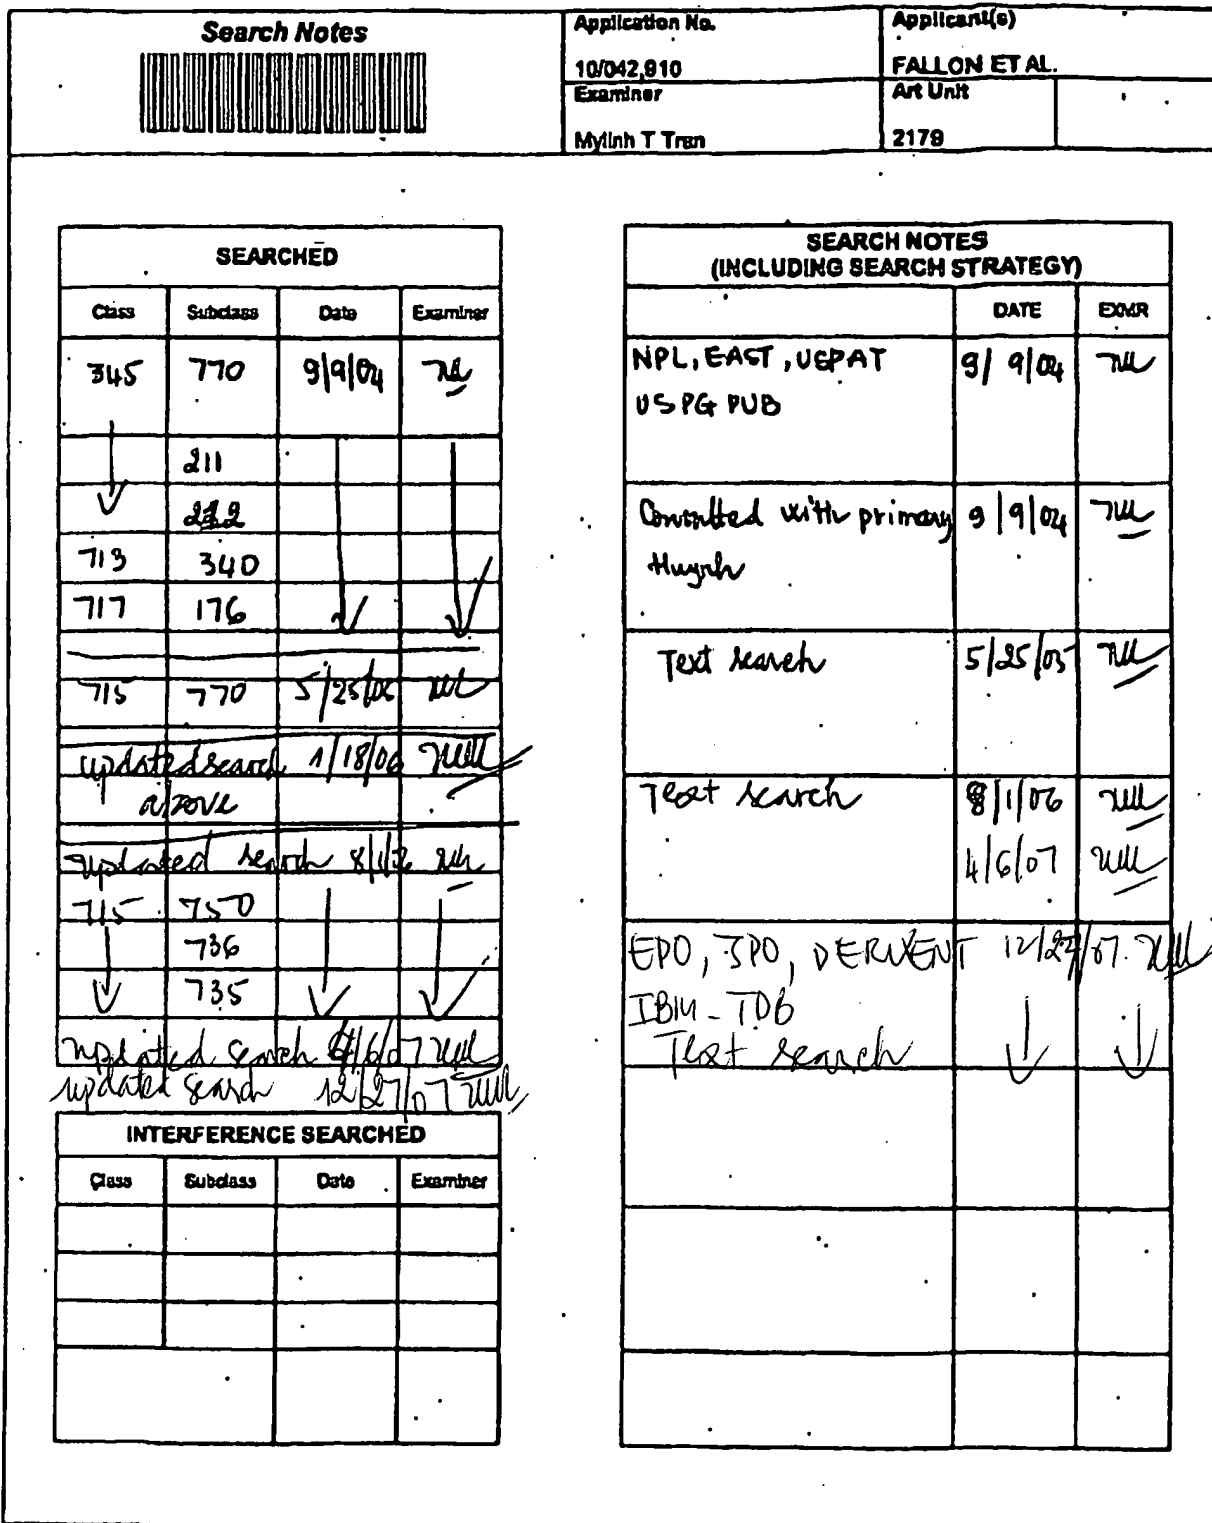 Search Notes
Application No.
10/042,910
Applicant(s)
FALLON ET AL.
Examiner
Mylinh T Tran
Art Unit
2179
SEARCHED
Class Subclass Date Examiner
345 770 9/9/04
211
212
713 340
717 176
715 770 5/25/05
updated search 1/18/06
above
updated search 8/1/06
715 750
736
735
updated search 4/6/07
updated search 12/27/07
INTERFERENCE SEARCHED
Class Subclass Date Examiner
SEARCH NOTES
(INCLUDING SEARCH STRATEGY)
DATE EXMR
NPL, EAST, USPAT 9/9/04
USPG PUB
Consulted with primary 9/9/04
Huynh
Text search 5/25/05
Text search 8/1/06
4/6/07
EPO, JPO, DERWENT 12/27/07
IBM-TDB
Text search